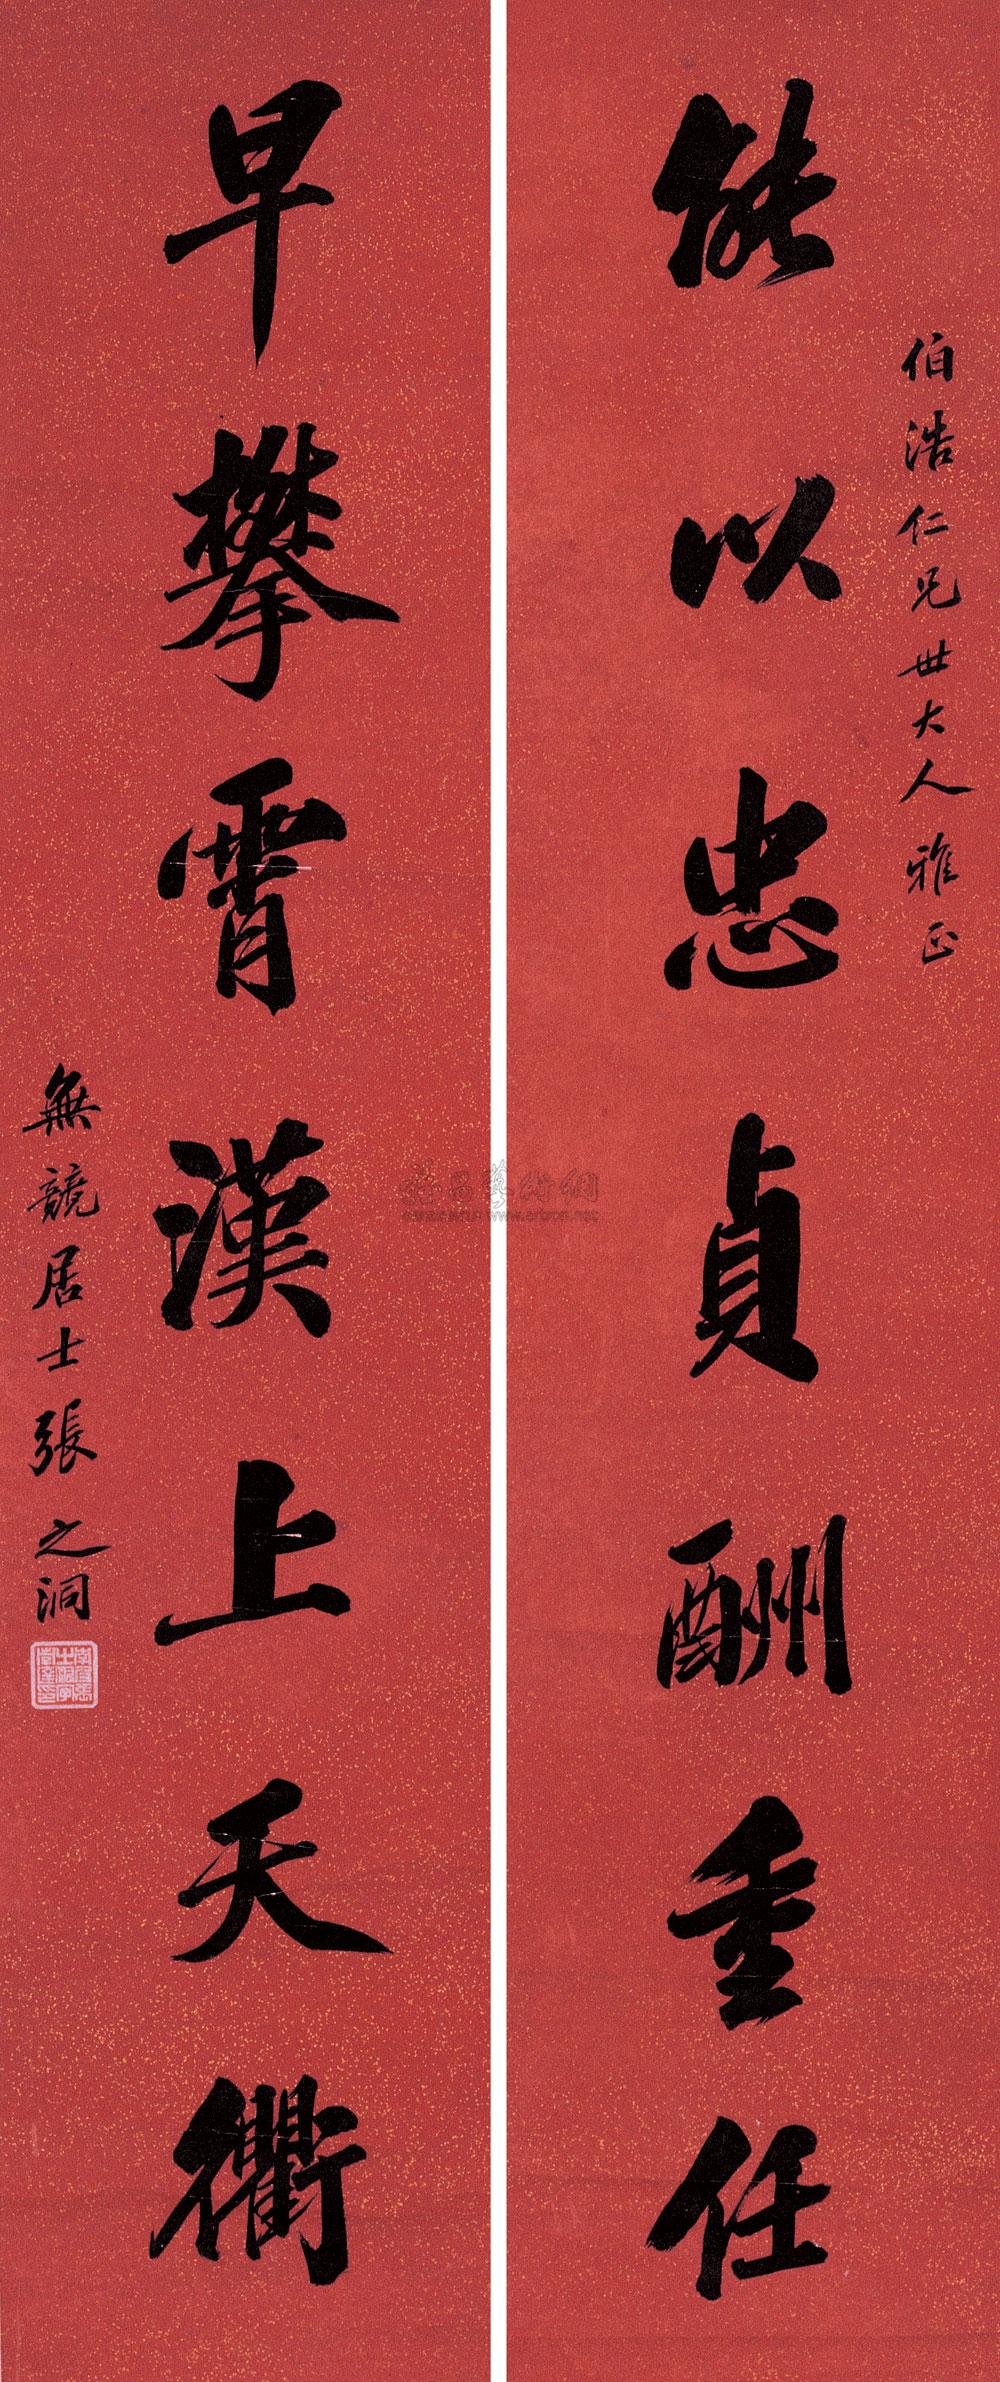 伯浩仁兄世大人雅正
能以忠貞酬重任
早攀霄漢上天衢
無競居士張之洞